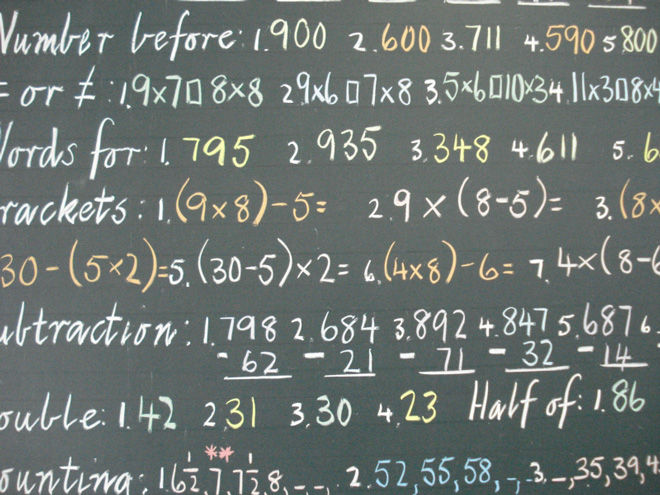 Number before: 1.900 2.600 3.711 4.590 5 800
= or ≠ : 1.9×7□8×8 2 9×6□7×8 3.5×6□10×3 4.11×3□8×4
Words for: 1. 795 2. 935 3. 348 4. 611 5. 6
rackets: 1.(9×8)-5= 2.9×(8-5)= 3.(8×
30-(5×2)=5.(30-5)×2= 6.(4×8)-6= 7.4×(8-6
ubtraction: 1.798 2.684 3.892 4.847 5.687 6
-62 -21 -71 -32 -14
ouble: 1.42 2.31 3.30 4.23 Half of: 1.86
**
ounting: 1.6½,7,7½,8,-,-, 2.52,55,58,-, 3.-,35,39,4